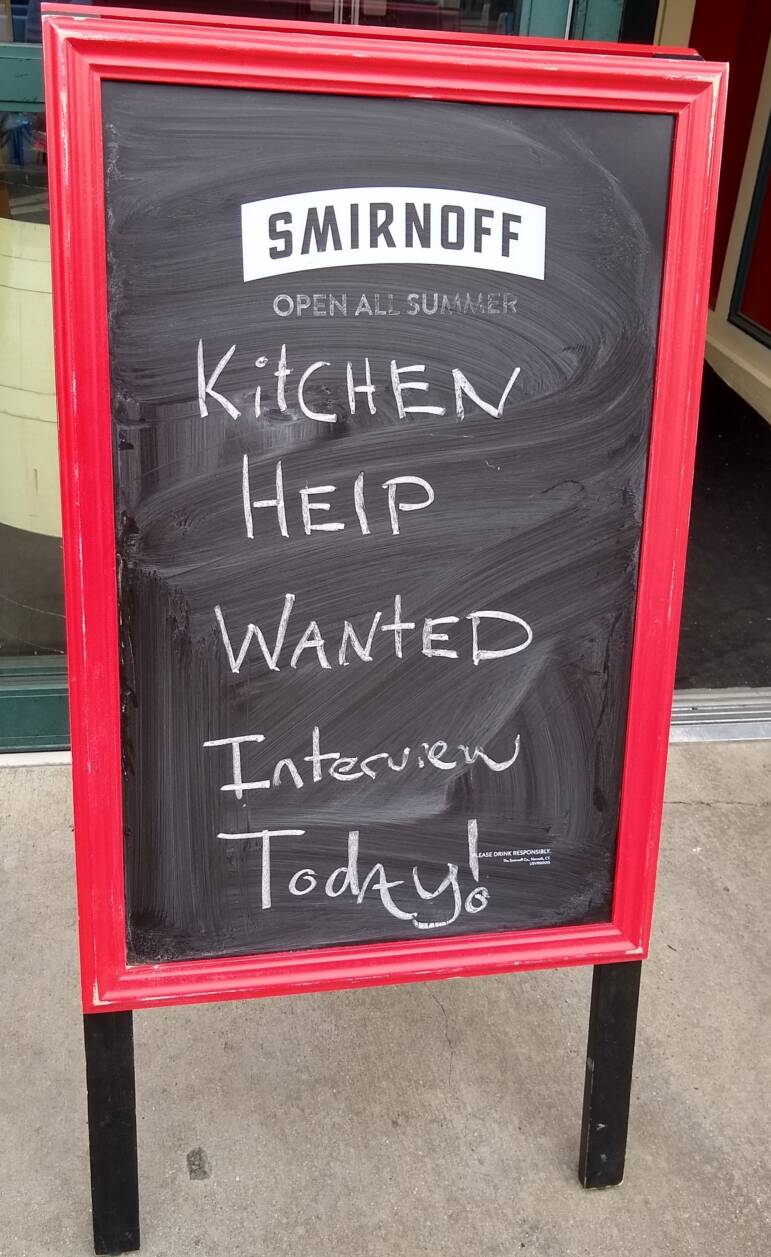 SMIRNOFF
OPEN ALL SUMMER
KitCHEN
HElP
WANtED
Interview
TodAy!
PLEASE DRINK RESPONSIBLY.